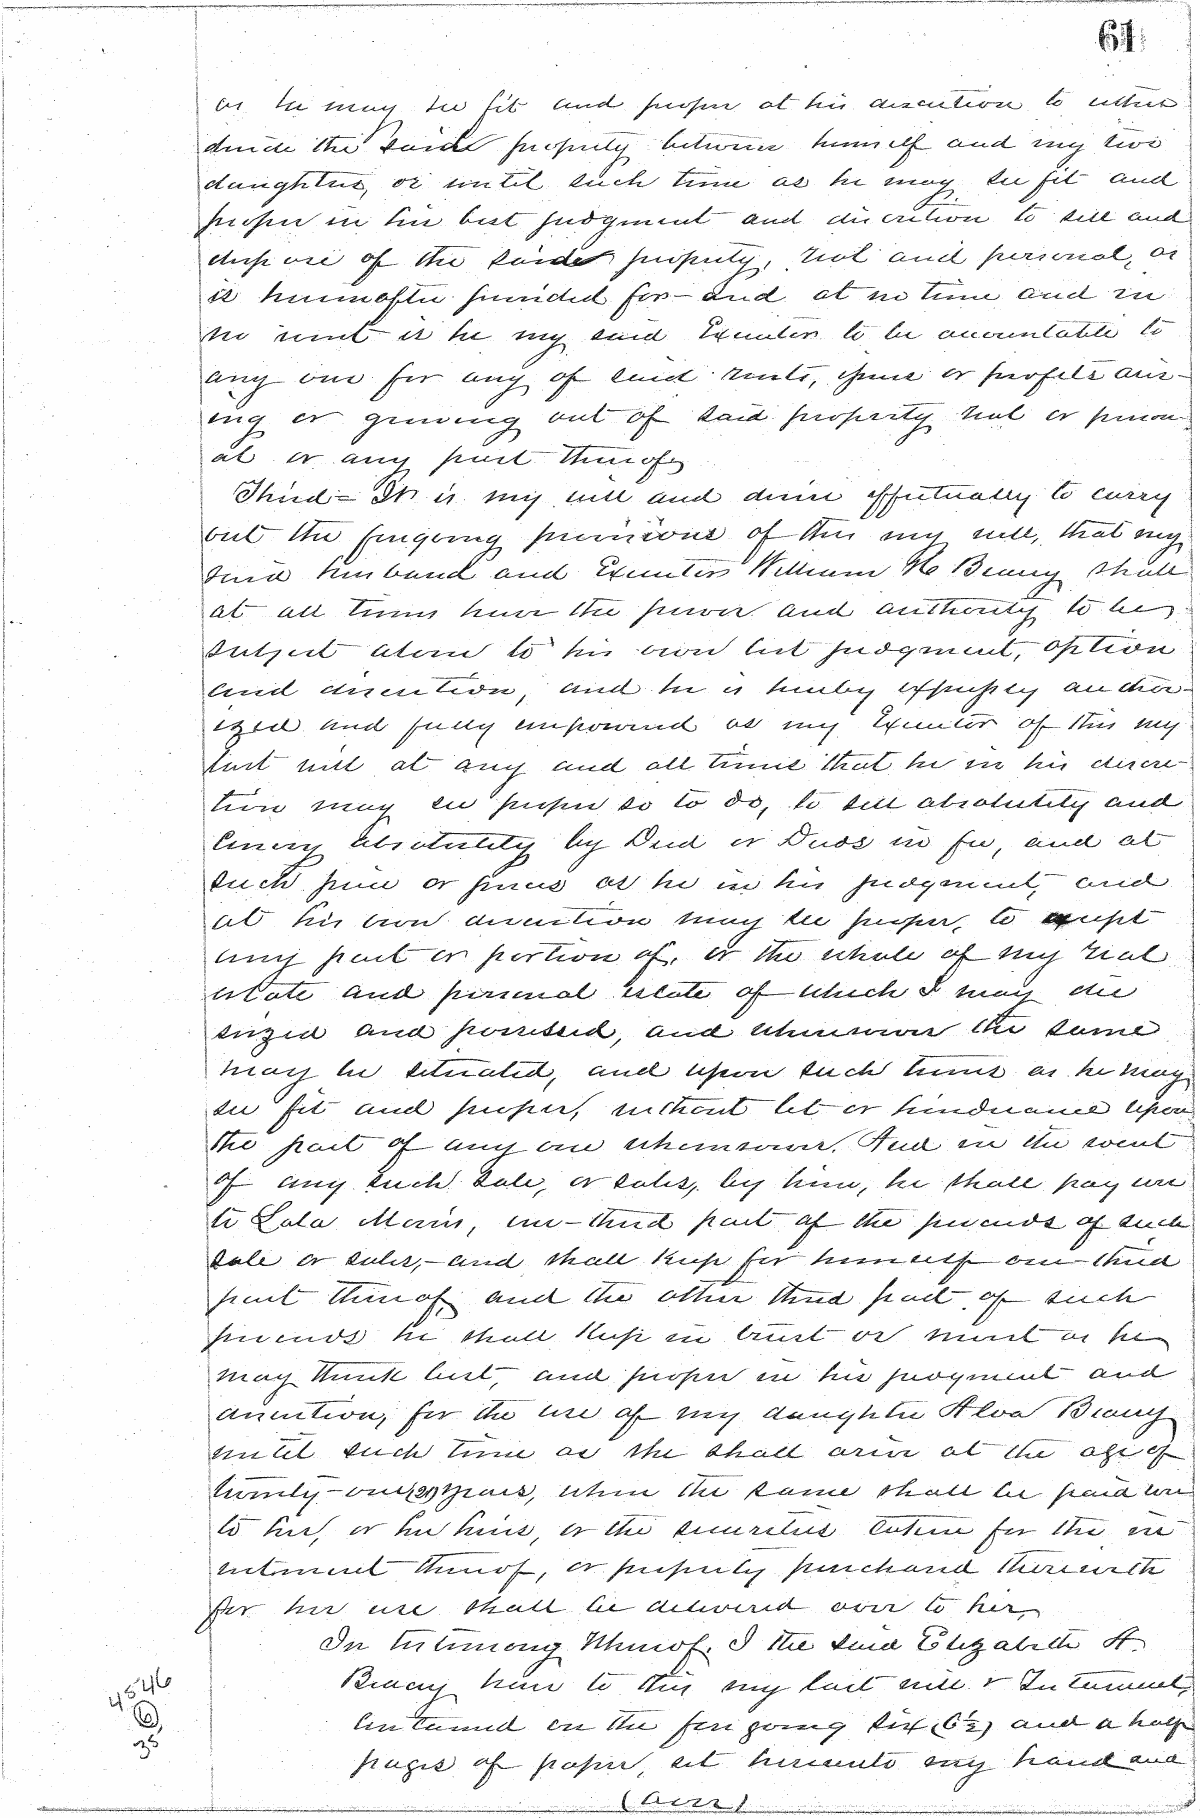 61
as he may see fit and proper at his discretion to either
divide the said property between himself and my two
daughters, or until such time as he may see fit and
proper in his best judgment and discretion to sell and
dispose of the said property, real and personal, as
is hereinafter provided for - and at no time and in
no event is he my said Executor to be accountable to
any one for any of said rents, issues or profits aris-
ing or growing out of said property real or person-
al or any part thereof.
Third - It is my will and desire effectually to carry
out the foregoing provisions of this my will, that my
said husband and Executor William H Beany shall
at all times have the power and authority to be
subject alone to his own best judgment, option
and discretion, and he is hereby expressly author-
ized and fully empowered as my Executor of this my
last will at any and all times that he in his discre-
tion may see proper so to do, to sell absolutely and
convey absolutely by Deed or Deeds in fee, and at
such price or prices as he in his judgment, and
at his own discretion may see proper, to accept
any part or portion of, or the whole of my real
estate and personal estate of which I may die
seized and possessed, and wheresoever the same
may be situated, and upon such terms as he may
see fit and proper, without let or hinderance upon
the part of any one whomsoever. And in the event
of any such sale, or sales, by him, he shall pay over
to Lola Morris, one-third part of the proceeds of such
sale or sales, - and shall keep for himself one-third
part thereof, and the other third part of such
proceeds he shall keep in trust or invest as he
may think best, and proper in his judgment and
discretion, for the use of my daughter Alva Beany
until such time as she shall arive at the age of
twenty-one (21) years, when the same shall be paid over
to her, or her heirs, or the securities taken for the in
vestment thereof, or property purchased therewith
for her use shall be delivered over to her.
In testimony Whereof, I the said Elizabeth A.
Beany have to this my last will & Testament,
contained on the foregoing six (6½) and a half
pages of paper, set hereunto my hand and
(over)
4546
6
35